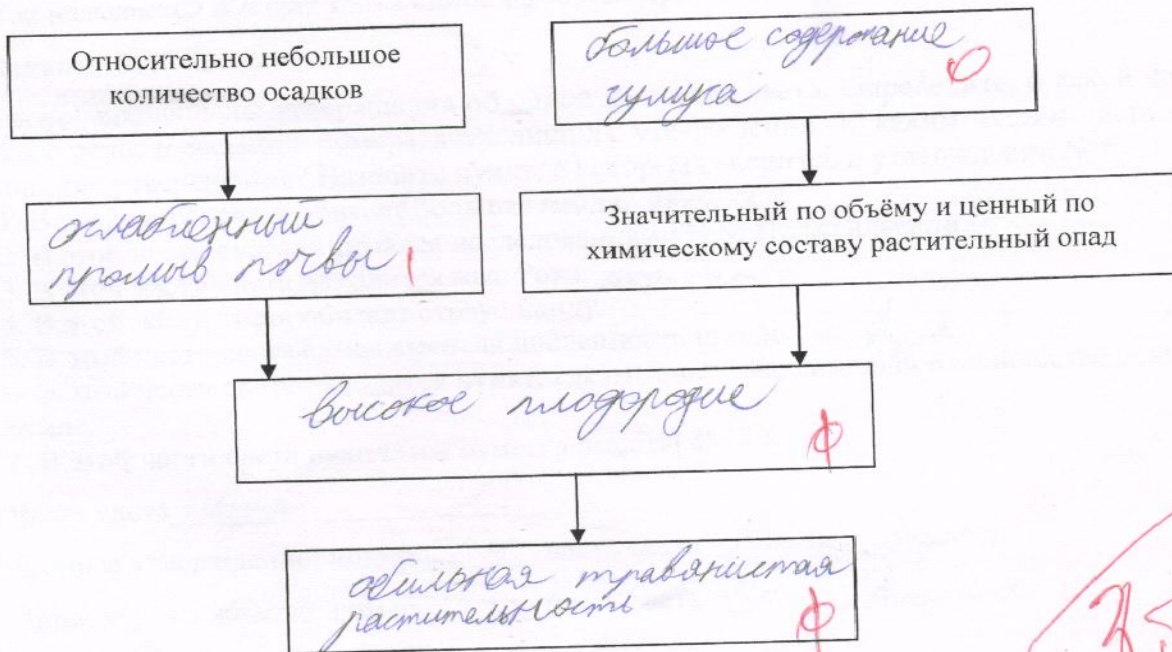 Относительно небольшое
количество осадков
большое содержание
гумуса
О
ослабленный
промыв почвы
1
Значительный по объёму и ценный по
химическому составу растительный опад
высокое плодородие
обильная травянистая
растительность